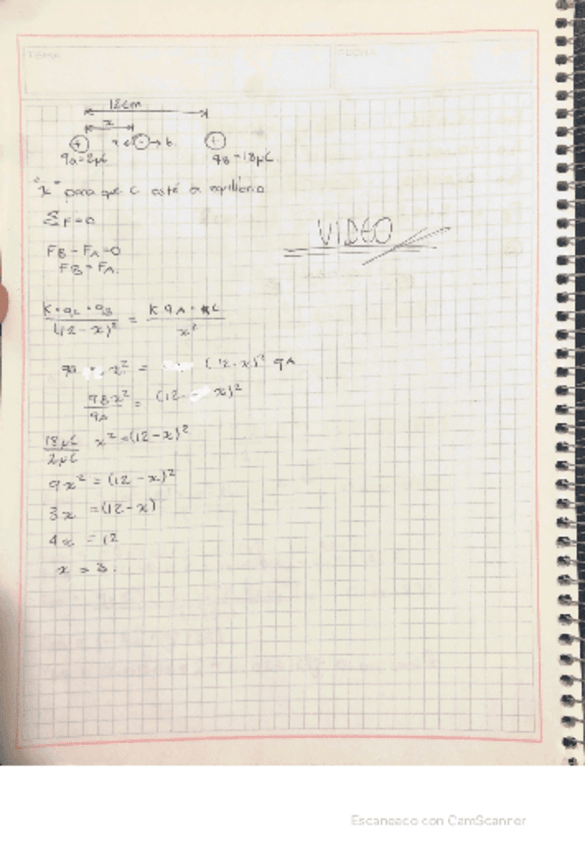 TEMA
FECHA
12cm
x
+ x ← - → b. +
qa=2μC qB=18μC.
"x" para que C esté en equilibrio
ΣF=0
VIDEO
FB - FA = 0
FB = FA.
K·qC·qB / (12-x)² = K qA · qC / x²
x² = (12-x)² qA
qB x² / qA = (12- x)²
18μC / 2μC x² = (12-x)²
9x² = (12-x)²
3x = (12-x)
4x = 12
x = 3.
Escaneado con CamScanner